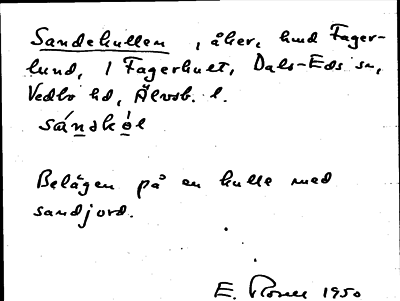 Sandekullen, åker, hmd Fager-
lund, 1 Fagerhult, Dals-Eds sn,
Vedbo hd, Älvsb. l.
sándkòl
Belägen på en kulle med
sandjord.
E. 1950